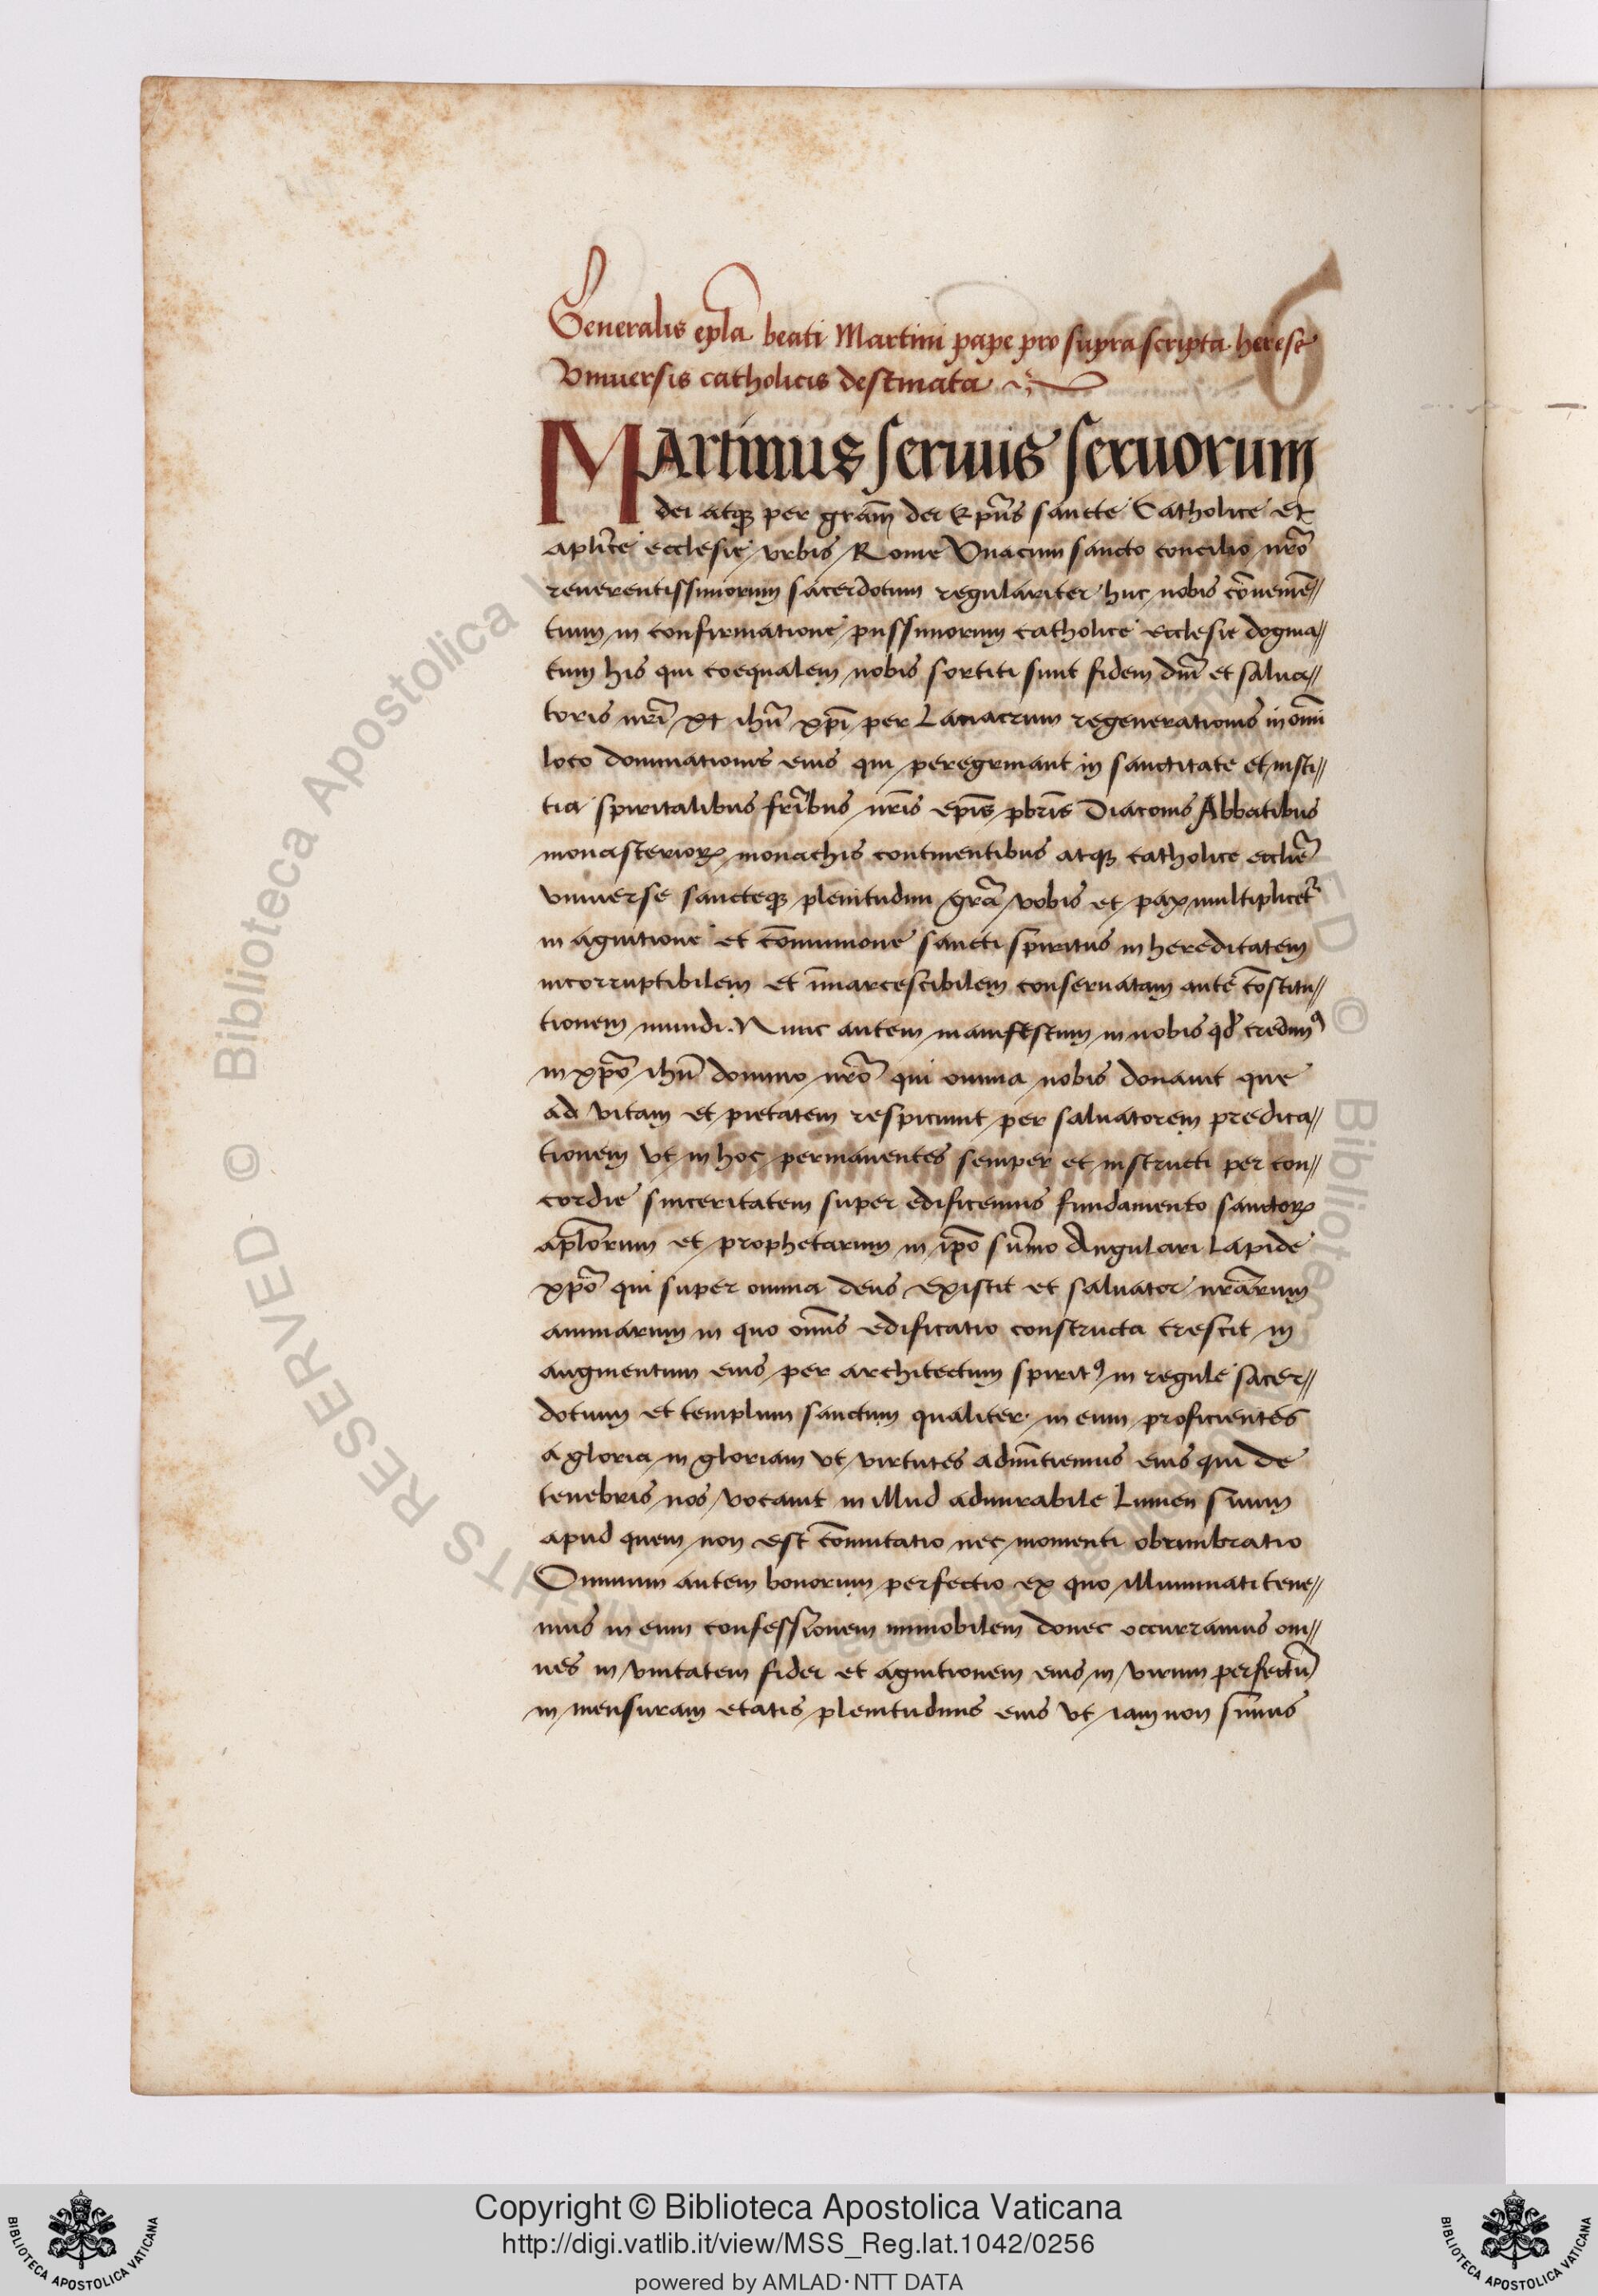 Generalis ep̄la beati Martini pape pro supra scripta herese
Vniuersis catholicis destinata
MArtinus seruus seruorum
dei atq; per grām dei Ep̄us sancte Catholice et
aplice ecclesie vrbis Rome Vnacum sancto concilio nr̄o
reuerentissimorum sacerdotum regulariter huc nobis cōuenie͞//
tium in confirmatione piissimorum catholice ecclesie dogma//
tum his qui coequalem nobis sortiti sunt fidem dn̄i et salua//
toris nr̄i ihū xp̄i per Lauacrum regenerationis in om̄i
loco dominationis eius qui peregrinant in sanctitate et iusti//
tia spiritalibus fr̄ibus nr̄is ep̄is pbr̄is Diaconis Abbatibus
monasterioꝝ monachis continentibus atq; catholice eccl̄ie
vniuerse sancteq; plenitudini gr̄a vobis et pax multiplicet̄
in agnitione et cōmunione sancti spiritus in hereditatem
incorruptibilem et īmarcescibilem conseruatam ante cōstitu//
tionem mundi. Nunc autem manifestum in nobis qd̄ credimꝰ
in xp̄o ihū domino nr̄o qui omnia nobis donauit que
ad vitam et pietatem respiciunt per saluatorem predica//
tionem vt in hoc permanentes semper et instructi per con//
cordie sinceritatem super edificemus fundamento sanctoꝝ
apl̄orum et prophetarum in ip̄o sūmo Angulari Lapide
xp̄o qui super omnia deus existit et saluator nr̄arum
animarum in quo om̄is edificatio constructa crescit in
augmentum eius per architectum spiritꝰ in regule sacer//
dotum et templum sanctum qualiter in eum proficientes
a gloria in gloriam vt virtutes adnūtiemus eius qui de
tenebris nos vocauit in illud admirabile Lumen suum
apud quem non est cōmutatio nec momenti obumbratio
Omnium autem bonorum perfectio ex quo illuminati tene//
mus in eum confessionem immobilem donec occurramus om//
nes in vnitatem fidei et agnitionem eius in virum perfectū
in mensuram etatis plenitudinis eius vt iam non simus
Copyright © Biblioteca Apostolica Vaticana
http://digi.vatlib.it/view/MSS_Reg.lat.1042/0256
powered by AMLAD·NTT DATA
BIBLIOTECA APOSTOLICA VATICANA
BIBLIOTECA APOSTOLICA VATICANA